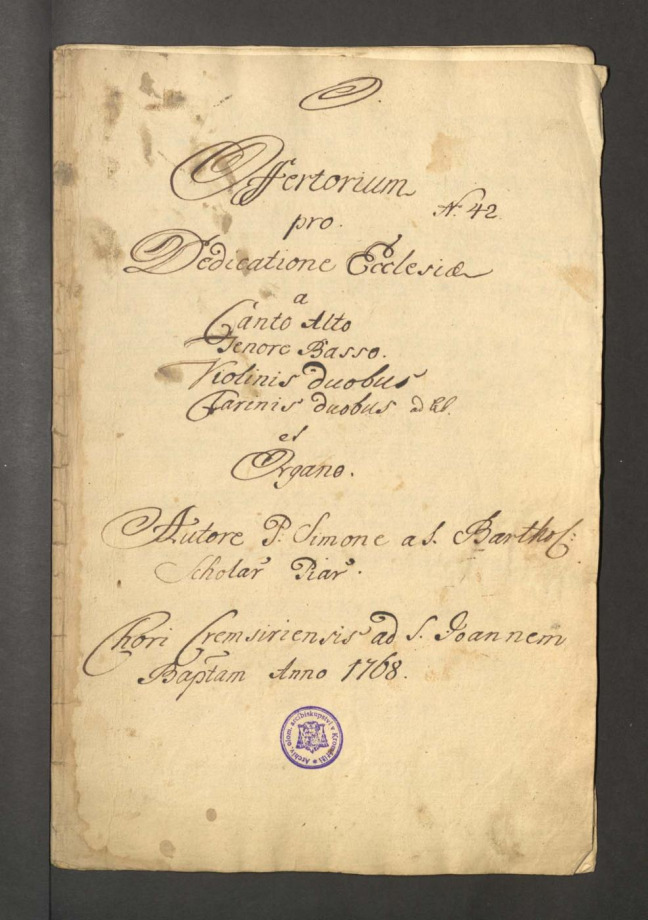 O.
Offertorium
N: 42.
pro.
Dedicatione Ecclesiæ
a
Canto Alto
Tenore Basso.
Violinis duobus
Clarinis duobus ad lib.
et
Organo.
Autore P: Simone a S. Barthol:
Scholar Piar.
Chori Cremsiriensis ad S. Joannem
Baptam Anno 1768.
Archiv olom. arcibiskupství v Kroměříži